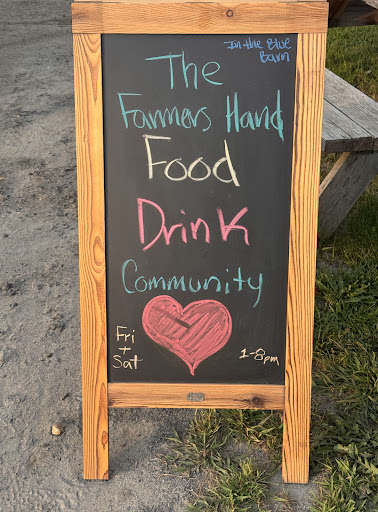 In the Blue
Barn
The
Farmers Hand
Food
Drink
Community
Fri
+
Sat
1-8pm